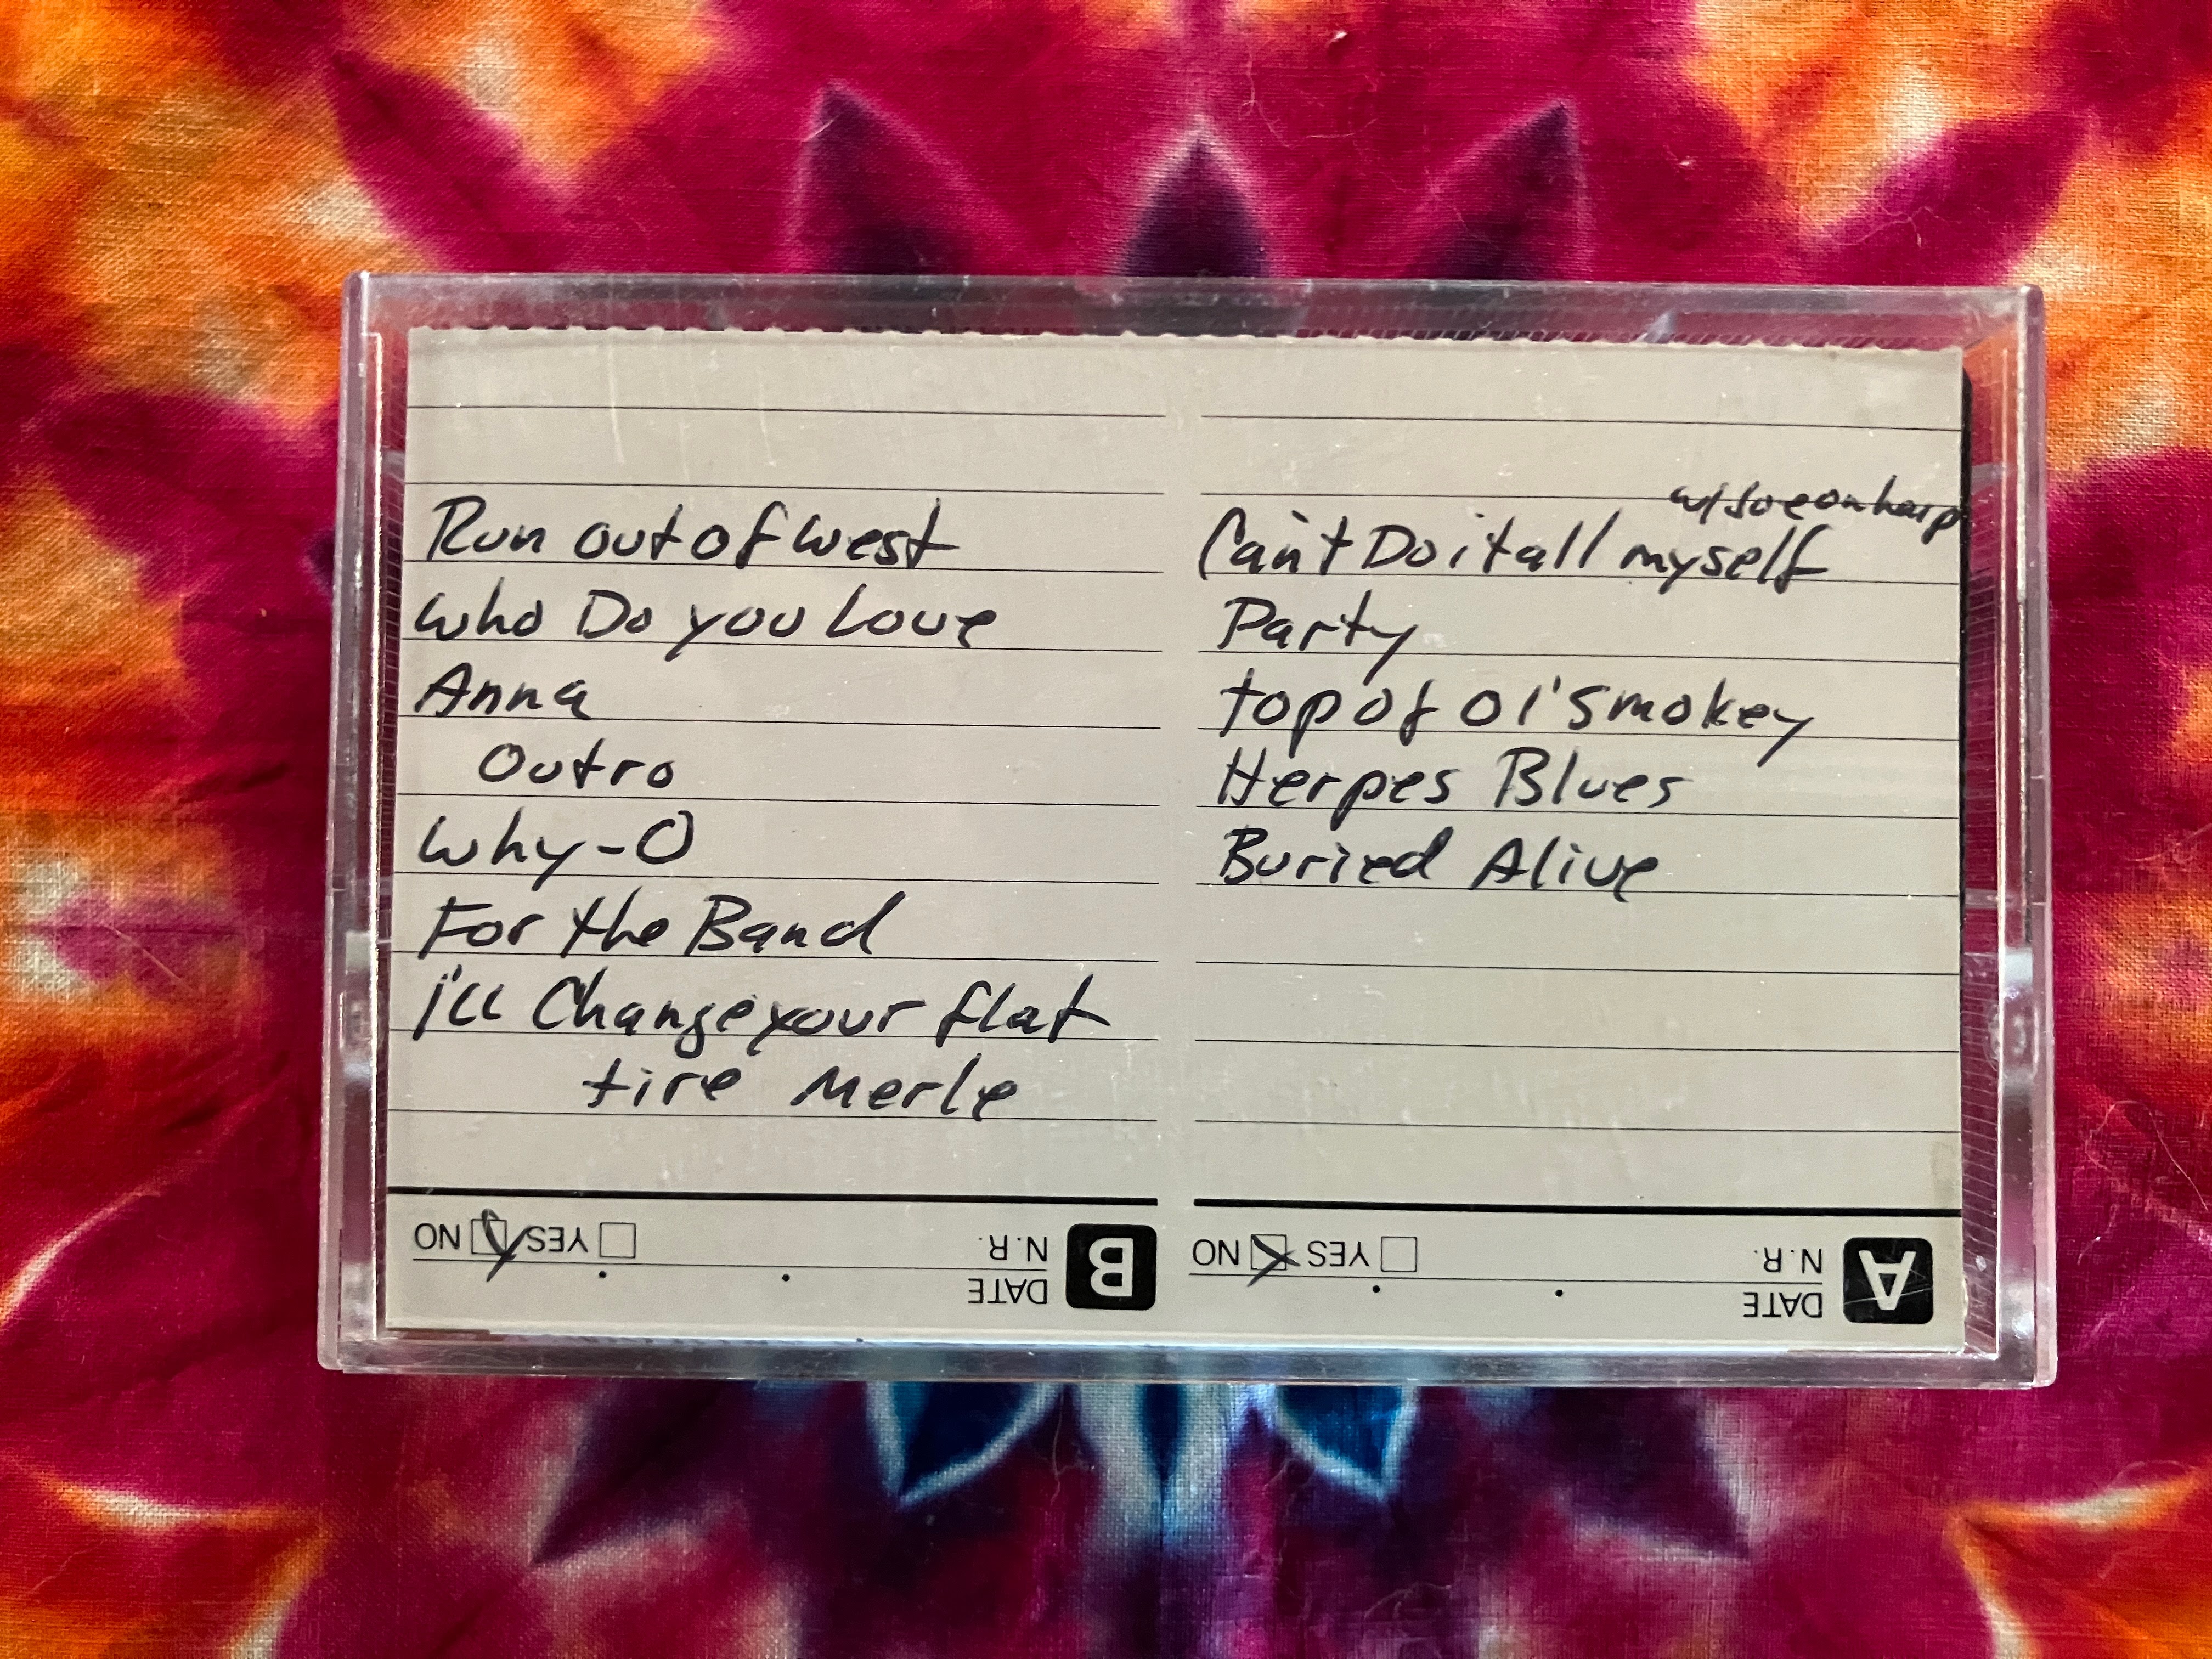 Run out of west
Who Do you Love
Anna
Outro
Why-O
For the Band
i'll Change your flat
tire Merle
w/ Joe on harp
Can't Do it all myself
Party
top of ol' Smokey
Herpes Blues
Buried Alive
B
DATE
N.R.
YES
NO
A
DATE
N.R.
YES
NO